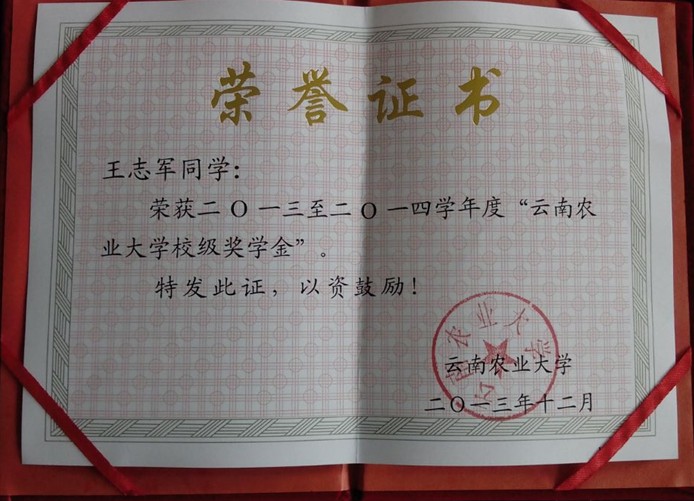 荣誉证书
王志军同学：
荣获二〇一三至二〇一四学年度“云南农
业大学校级奖学金”。
特发此证，以资鼓励！
云南农业大学
云南农业大学
二〇一三年十二月